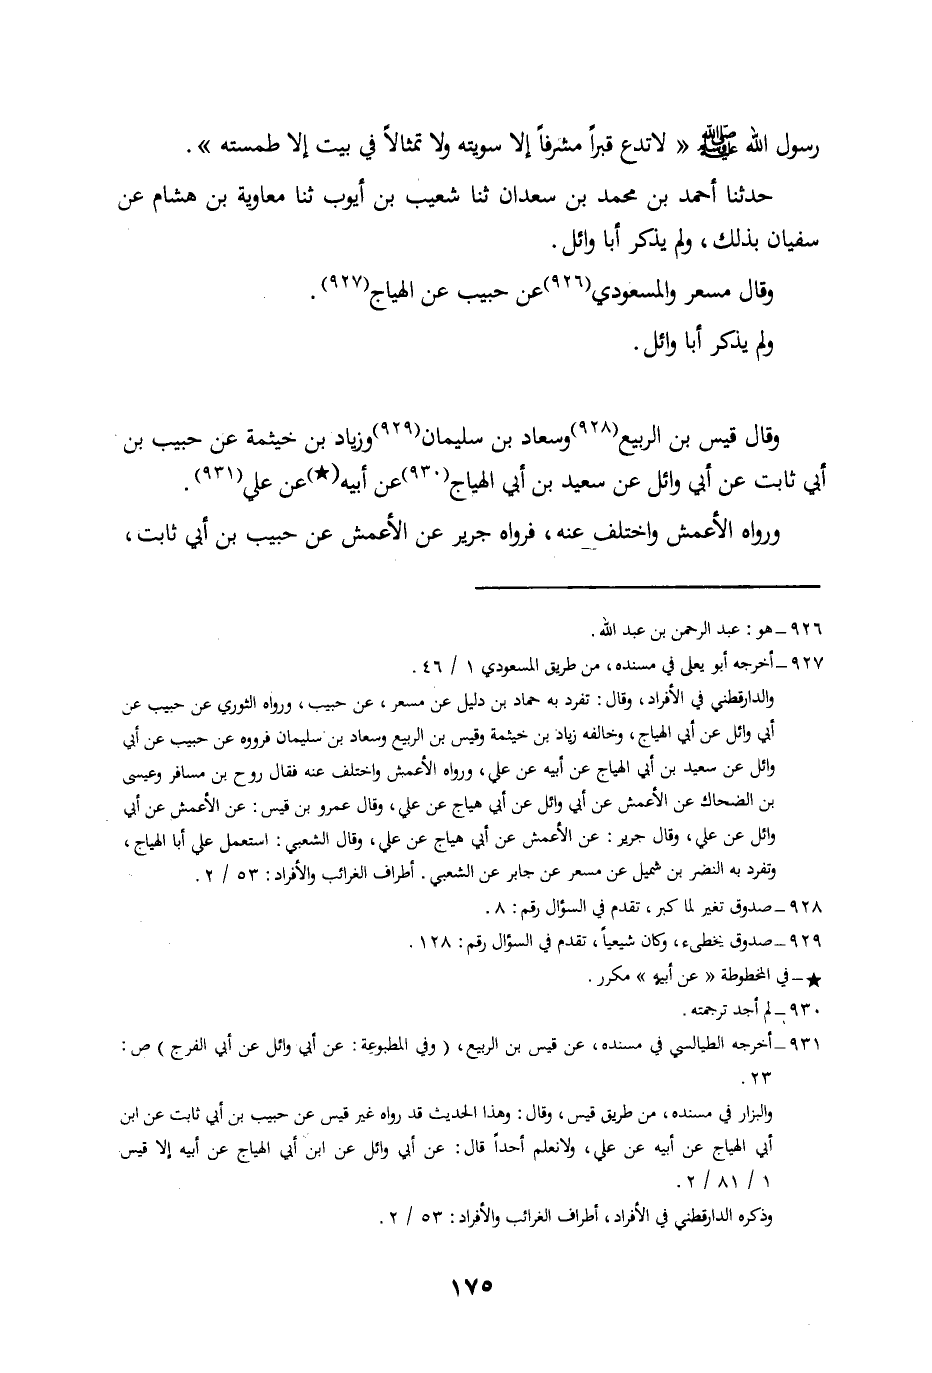 رسول الله ﷺ « لاتدع قبراً مشرفاً إلا سويته ولا تمثالاً في بيت إلا طمسته » .
حدثنا أحمد بن محمد بن سعدان ثنا شعيب بن أيوب ثنا معاوية بن هشام عن
سفيان بذلك ، ولم يذكر أبا وائل .
وقال مسعر والمسعودي(٩٢٦)عن حبيب عن الهياج(٩٢٧) .
ولم يذكر أبا وائل .
وقال قيس بن الربيع(٩٢٨)وسعاد بن سليمان(٩٢٩)وزياد بن خيثمة عن حبيب بن
أبي ثابت عن أبي وائل عن سعيد بن أبي الهياج(٩٣٠)عن أبيه(★)عن علي(٩٣١) .
ورواه الأعمش واختلف عنه ، فرواه جرير عن الأعمش عن حبيب بن أبي ثابت ،
٩٢٦ـ هو : عبد الرحمن بن عبد الله .
٩٢٧ـ أخرجه أبو يعلى في مسنده ، من طريق المسعودي ١ / ٤٦ .
والدارقطني في الأفراد ، وقال : تفرد به حماد بن دليل عن مسعر ، عن حبيب ، ورواه الثوري عن حبيب عن
أبي وائل عن أبي الهياج ، وخالفه زياد بن خيثمة وقيس بن الربيع وسعاد بن سليمان فرووه عن حبيب عن أبي
وائل عن سعيد بن أبي الهياج عن أبيه عن علي ، ورواه الأعمش واختلف عنه فقال روح بن مسافر وعيسى
بن الضحاك عن الأعمش عن أبي وائل عن أبي هياج عن علي ، وقال عمرو بن قيس : عن الأعمش عن أبي
وائل عن علي ، وقال جرير : عن الأعمش عن أبي هياج عن علي ، وقال الشعبي : استعمل علي أبا الهياج ،
وتفرد به النضر بن شميل عن مسعر عن جابر عن الشعبي . أطراف الغرائب والأفراد : ٥٣ / ٢ .
٩٢٨ـ صدوق تغير لما كبر ، تقدم في السؤال رقم : ٨ .
٩٢٩ـ صدوق يخطىء ، وكان شيعياً ، تقدم في السؤال رقم : ١٢٨ .
★ـ في المخطوطة « عن أبيه » مكرر .
٩٣٠ـ لم أجد ترجمته .
٩٣١ـ أخرجه الطيالسي في مسنده ، عن قيس بن الربيع ، ( وفي المطبوعة : عن أبي وائل عن أبي الفرج ) ص :
٢٣ .
والبزار في مسنده ، من طريق قيس ، وقال : وهذا الحديث قد رواه غير قيس عن حبيب بن أبي ثابت عن ابن
أبي الهياج عن أبيه عن علي ، ولانعلم أحداً قال : عن أبي وائل عن ابن أبي الهياج عن أبيه إلا قيس
١ / ٨١ / ٢ .
وذكره الدارقطني في الأفراد ، أطراف الغرائب والأفراد : ٥٣ / ٢ .
١٧٥